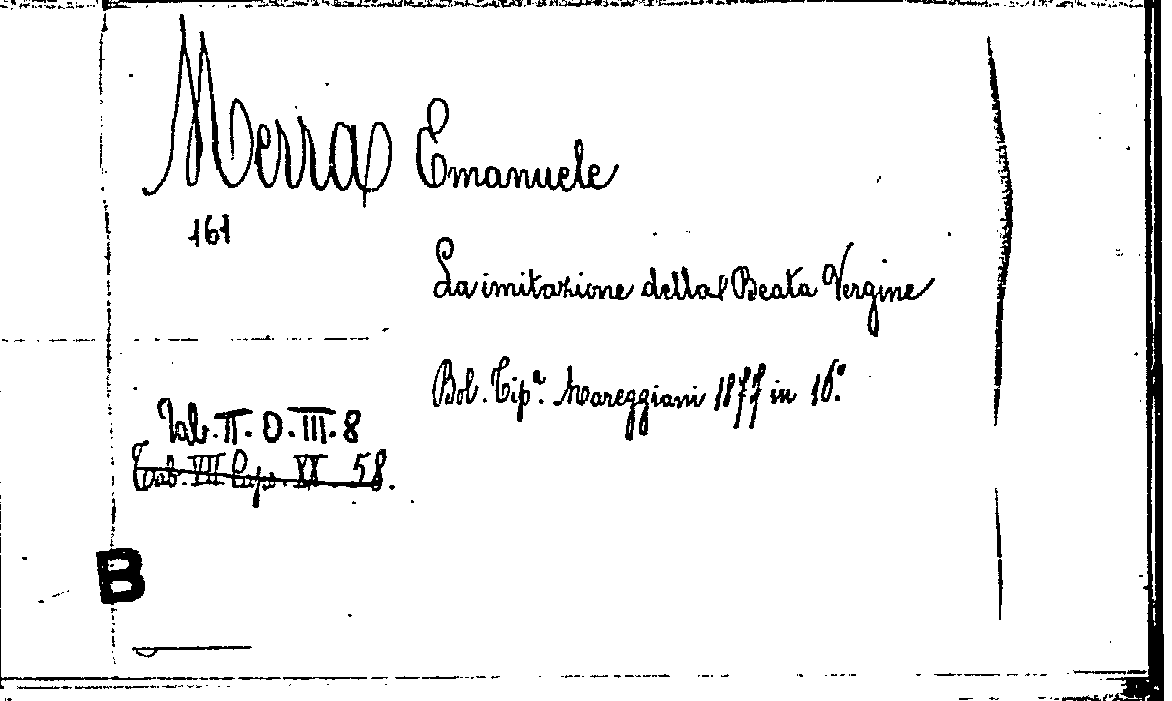 Merra Emanuele
161
La imitazione della Beata Vergine
Bol. Tip.ª Mareggiani 1877 in 16.º
Tab. II. O. III. 8
Tab. VII Caps. XX. 58.
B